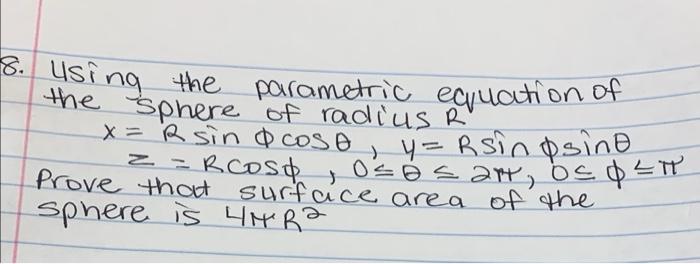 8. Using the parametric equation of
the sphere of radius R
x = R sin ϕ cos θ, y = R sin ϕ sin θ
z = R cos ϕ, 0 ≤ θ ≤ 2π, 0 ≤ ϕ ≤ π
Prove that surface area of the
sphere is 4πR²